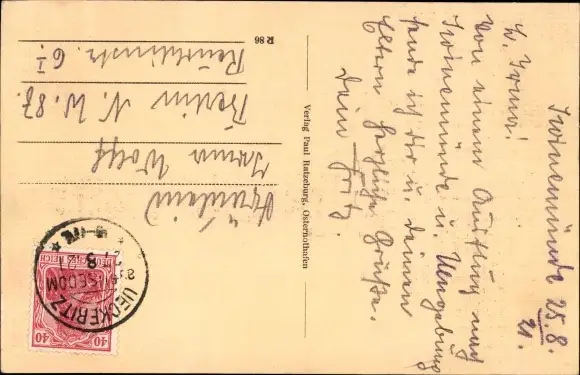 Swinemünde 25.8.
21.
L. Irma!
Von einem Ausflug nach
Swinemünde u. Umgebung
sende ich dir u. deinen
Eltern herzliche Grüße.
Dein Fritz.
Verlag Paul Ratzeburg, Osternothafen
Fräulein
Irma Wolff
Berlin N.W. 87.
6 I
R 86
40
40
DEUTSCHES REICH
UECKERITZ